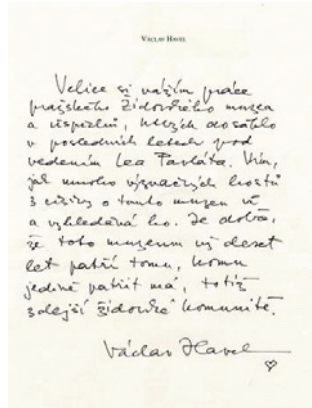 VÁCLAV HAVEL
Velice si vážím práce
pražského Židovského muzea
a úspěchů, kterých dosáhlo
v posledních letech pod
vedením Lea Pavláta. Vím,
jak mnoho význačných hostů
z ciziny o tomto muzeu ví
a vyhledává ho. Je dobře,
že toto muzeum už deset
let patří tomu, komu
jedině patřit má, totiž
zdejší židovské komunitě.
Václav Havel